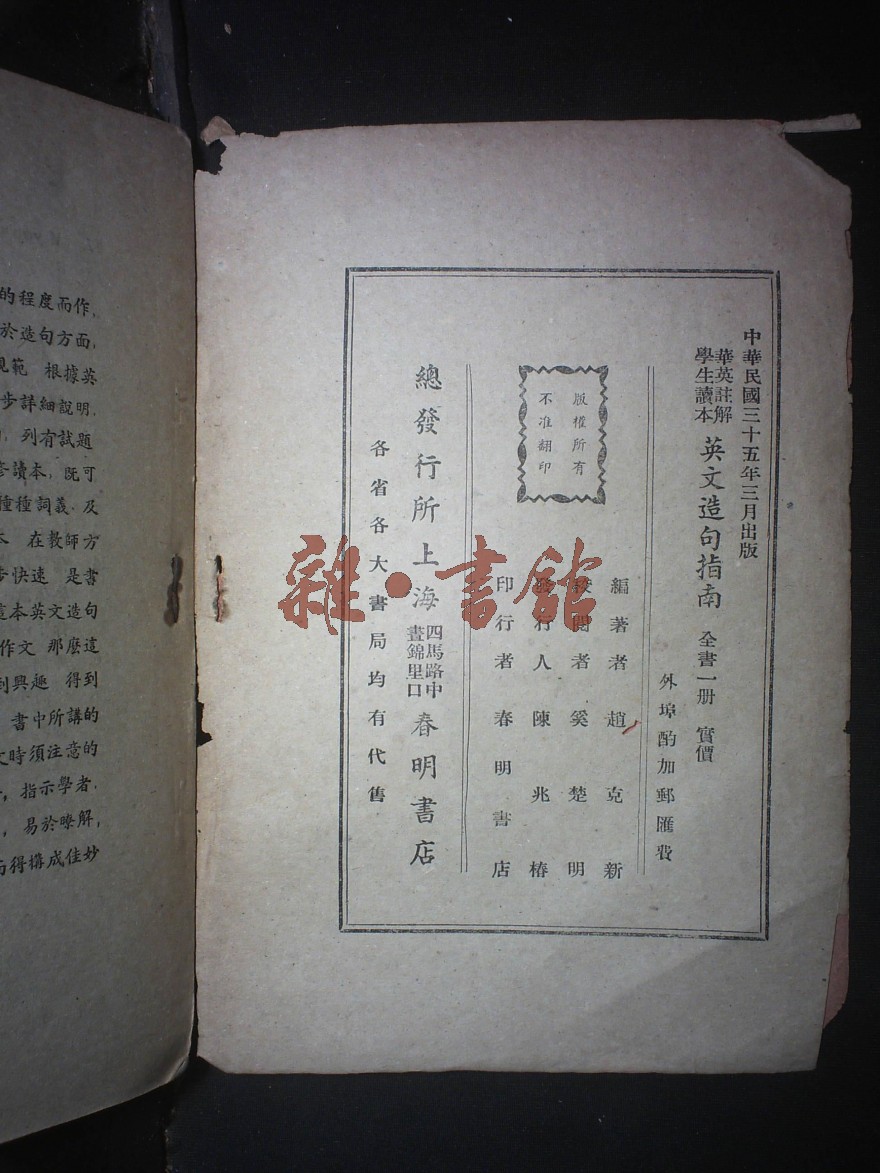 中華民國三十五年三月出版
華英註解
學生讀本
英文造句指南
全書一册 實價
外埠酌加郵匯費
編著者 趙克新
校閱者 奚楚明
發行人 陳兆椿
印行者 春明書店
版權所有
不准翻印
總發行所上海
四馬路中
晝錦里口
春明書店
各省各大書局均有代售
雜·書館
的程度而作,
於造句方面,
規範 根據英
步詳細說明,
列有試題
讀本, 既可
種種詞義 及
在教師方
步快速 是書
這本英文造句
作文 那麽這
到興趣 得到
書中所講的
文時須注意的
指示學者,
易於瞭解,
而得構成佳妙